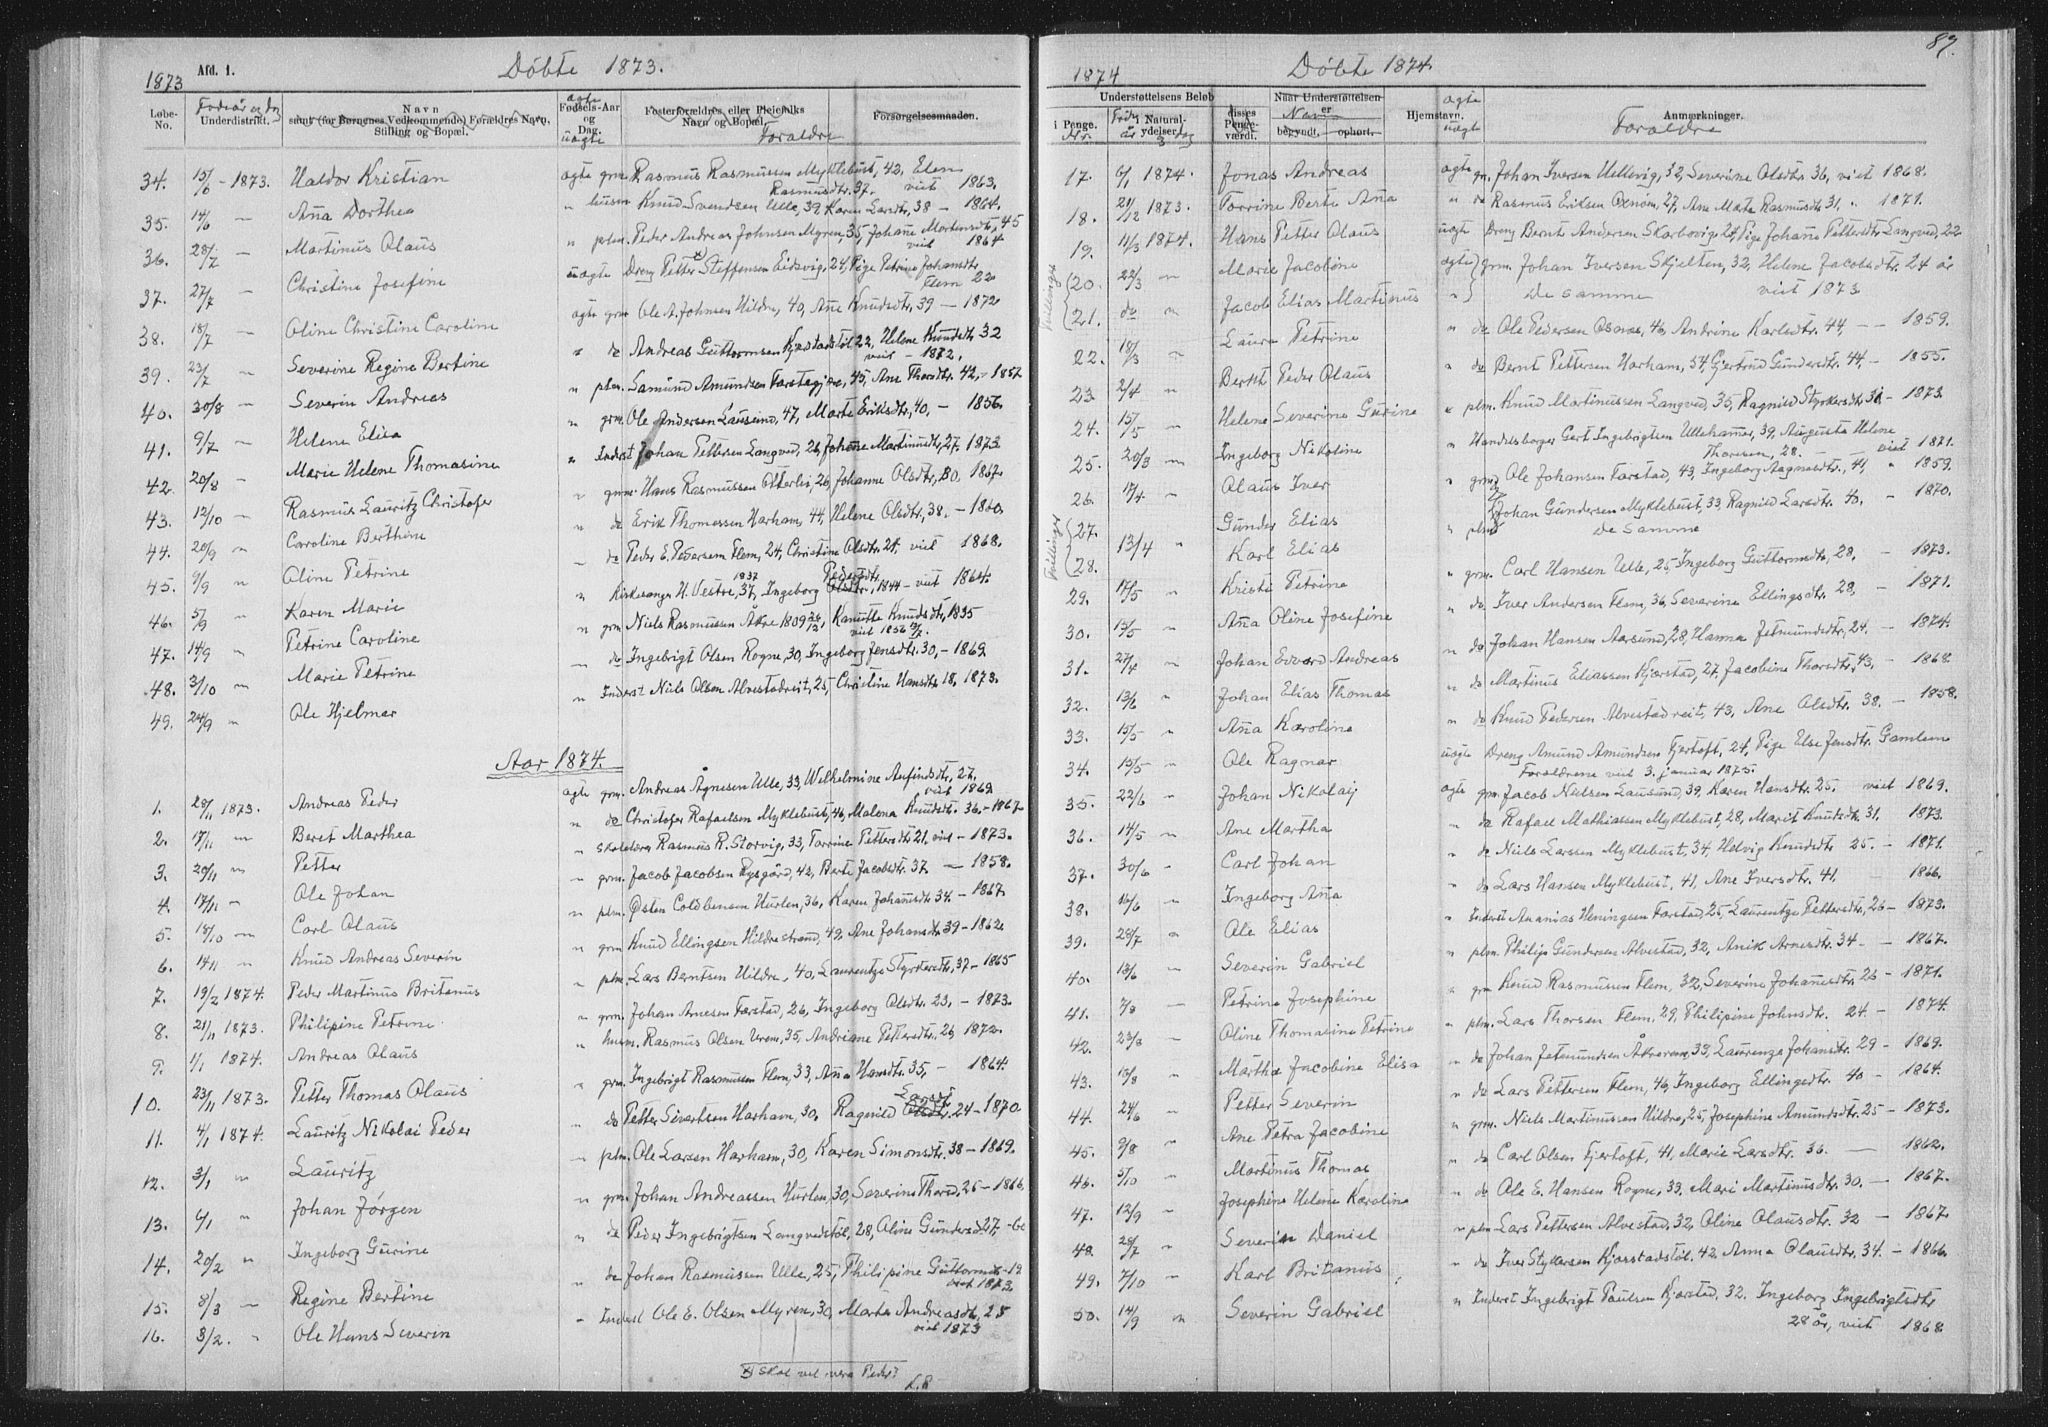 Døbte 1873.
1873 Afd. 1.
Løbe-No. Underdistrikt. Navn samt (for Børnenes Vedkommende) Forældres Navn, Stilling og Bopæl. Fødsels-Aar og Dag. Fosterforældres, eller Pleiefolks Navn og Bopæl. Forsorgelsesmaaden.
ægte uægte Forældre
34. 15/6 - 1873. Haldor Kristian ægte grm. Rasmus Rasmussen Myklebust, 42, Elen
Rasmusdtr. 37. viet 1863.
35. 14/6 — Aña Dorthea " husm Knud Svendsen Ulle, 39, Karen Larsdtr, 38 — 1864.
36. 28/7 — Martinus Olaus " plm. Peder Andreas Johnsen Myren, 35, Johañe Martensdtr, 45
viet 1864
37. 27/7 — Christine Josefine uægte Dreng Petter Steffensen Eidsvig, 24, Pige Petrine Johansdtr
Flem 22
38. 18/7 — Oline Christine Caroline ægte grm Ole A. Johnsen Hildre, 40, Ane Knudsdtr, 39 — 1872
39. 23/7 — Severine Regine Bertine " do Andreas Guttormsen Kjærstadstøl 22, Helene Knudsdtr 32
viet — 1872.
40. 30/8 — Severin Andreas " plm. Samund Amundsen Farstegjøre, 45, Ane Thorsdtr. 42, - 1857
41. 9/7 — Helene Elisa " grm. Ole Andersen Lausund, 47, Marte Eriksdtr, 40, — 1856.
42. 20/8 — Marie Helene Thomasine " Inderst Johan Pettersen Langved, 26, Johanne Martinusdtr, 27. 1873
43. 12/10 — Rasmus Lauritz Christofer " grm. Hans Rasmussen Otterlei, 26, Johanne Olsdtr, 30. 1867.
44. 20/9 " Caroline Berthine " do Erik Thomassen Harham, 44, Helene Olsdtr, 38. — 1860.
45. 9/9 " Oline Petrine — do Peder E. Pedersen Flem, 24, Christine Olsdtr. 24, viet 1868.
46. 5/9 " Karen Marie " Kirkesanger H. Vestre, 37, Ingeborg Pedersdtr, 1844 — viet 1864.
47. 14/9 " Petrine Caroline " grm Niels Rasmussen Åkre 1809, Kanutte Knudsdtr, 1835
viet 1856
48. 3/10 " Marie Petrine — do Ingebrigt Olsen Rogne, 30, Ingeborg Jensdtr. 30, — 1869.
49. 24/9 " Ole Hjelmar " Inderst Niels Olsen Alvestadreit, 25, Christine Hansdtr 18, 1873.
Aar 1874.
1. 28/11 1873. Andreas Peder ægte grm. Andreas Agnesen Ulle, 33, Wilhelmine Aufindsdtr, 27.
viet 1869
2. 17/11 " Beret Marthea " do Christofer Rafaelsen Myklebust, 46, Malena Knudsdtr. 36. — 1867.
3. 20/11 " Petter " Skolelærer Rasmus R. Storvig, 33, Torrine Pettersdtr 21. viet — 1873.
4. 17/11 " Ole Johan " grm. Jacob Jacobsen Rysgård, 42, Berte Jacobsdtr. 37. — 1858.
5. 18/10 — Carl Olaus " plm. Østen Coldbensen Hurlen, 36, Karen Johansdtr. 34. — 1867.
6. 14/11 " Knud Andreas Severin " grm Knud Ellingsen Hildrestrand, 49, Ane Johansdtr 39 — 1862.
7. 19/2 1874. Peder Martinus Britanus " plm. Lars Berntsen Hildre, 40, Laurentze Styrkersdtr, 37 — 1865
8. 21/11 1873. Philipine Petrine " grm. Johan Arnesen Farstad, 26, Ingeborg Olsdtr. 23, — 1873.
9. 1/1 1874. Andreas Olaus " husm. Rasmus Olsen Urem, 35, Andriane Pettersdtr. 26 1872.
10. 23/11 1873. Petter Thomas Olaus " grm. Ingebrigt Rasmussen Flem, 33, Aña Hansdtr. 35, — 1864.
11. 4/1 1874. Lauritz Nikolai Peder " do Petter Sivertsen Harham, 30, Ragnild Larsdt. 24 — 1870.
12. 3/1 " Lauritz — plm. Ole Larsen Harham, 30, Karen Simonsdtr. 38 — 1869.
13. 6/1 " Johan Jørgen " grm. Johan Andreassen Hurlen, 30, Severine Thorsd, 26 — 1866
14. 20/2 " Ingeborg Gurine " do Peder Ingebrigtsen Langvedstøl, 28, Oline Gundersd. 27. —
15. 8/3 — Regine Bertine " do Johan Rasmussen Ulle, 25, Philipine Guttormsd — 19
viet 1873
16. 3/2. " Ole Hans Severin " Inderst Ole E. Olsen Myren, 30, Marte Andreasdt, 28
viet 1873
x) Skal vel vera Peder?
L.R
87.
Døbte 1874
1874
Understøttelsens Beløb i Penge. i Naturalydelser. disses Pengeværdi. Naar Understøttelsen er begyndt. ophørt. Hjemstavn. Anmærkninger.
Nr. Navn ægte uægte Forældre
17. 6/1 1874. Jonas Andreas ægte gm. Johan Iversen Hellevig, 32, Severine Olsdtr 36, viet 1868.
18. 21/12 1873. Torrine Berte Aña " do Rasmus Eriksen Oxnøen, 27, Ane Marte Rasmusdtr 31, " 1871.
19. 4/3 1874. Hans Petter Olaus uægte Dreng Bernt Andersen Skarbovig, 24, Pige Johañe Pettersdtr Langved, 22
Tvillinger
20. 22/3 " Marie Jacobine ægte grm. Johan Iversen Skjelten, 32, Helene Jacobsdtr. 24 år
21. do " Jacob Elias Martinus " De samme viet 1873
22. 18/3 — Laura Petrine " do Ole Pedersen Osnes, 46, Andrine Karlsdtr. 44, — — 1859.
23 2/4 " Bernt Peder Olaus " do Bernt Pettersen Harham, 54, Gjertrud Gundersdtr. 44, — 1855.
24. 15/5 " Helene Severine Gurine " plm. Knud Martinussen Langved, 35, Ragnild Styrkersdtr. 31 — 1873.
25. 20/3 — Ingeborg Nikoline " Handelsborger Gert Ingebrigtsen Ullehamer, 39, Augusta Helene
Thoresen, 28. — — viet 1871.
26. 17/4 " Olaus Iver " grm. Ole Johansen Farstad, 43, Ingeborg Aagnesdtr., 41, " 1859.
Tvillinger
27. Gunder Elias Johan Gundersen Myklebust, 33, Ragnild Larsdtr. 40. — 1870.
28. 13/4 " Karl Elias " plm De samme
29. 17/5 " Kristi Petrine " grm. Carl Hansen Ulle, 25, Ingeborg Guttormsdtr, 28, — 1873.
30. 15/5 " Aña Oline Josefine " do. Iver Andersen Flem, 36, Severine Ellingsdtr. 28, — 1871.
31. 27/4 — Johan Edvard Andreas " do Johan Hansen Aarsund, 28, Hanna Jetmundsdtr, 24. — 1874.
32. 13/6 " Johan Elias Thomas " do Martinus Eliassen Kjærstad, 27, Jacobine Thorsdtr, 43, — 1868.
33. 15/5 " Aña Karoline " do Knud Pedersen Alvestadreit, 43, Ane Olsdtr. 38. — 1858.
34. 15/5 " Ole Ragnar uægte Dreng Amund Amundsen Fjertoft, 24, Pige Else Jensdtr. Gamlem
Forældrene viet 3. januar 1875.
35. 22/6 " Johan Nikolaij ægte grm Jacob Nielsen Lausund, 39, Karen Hansdtr. 25. viet 1869.
36. 14/5 " Ane Martha " do Rafael Mathiassen Myklebust, 28, Marit Knudsdtr. 31. 1873.
37. 30/6 — Carl Johan " do Niels Larssen Myklebust, 34, Helvig Knudsdtr 25. — 1871.
38. 16/6 " Ingeborg Aña " do Lars Hansen Myklebust, 41, Ane Iversdtr. 41. — 1866.
39. 28/7 " Ole Elias " Inderst Ananias Heningsen Farstad, 25, Laurentze Pettersdtr, 26 — 1873.
40. 18/6 " Severin Gabriel " plm. Philip Gundersen Alvestad, 32, Anik Arnesdtr. 34 — — 1867.
41. 7/8 — Petrine Josephine " grm Knud Rasmussen Flem, 32, Severine Johansdtr 26 — 1871.
42. 23/8 " Oline Thomasine Petrine " plm. Lars Thorsen Flem, 29, Philipine Johnsdtr. 24 — 1874.
43. 13/8 " Martha Jacobine Elisa " do Johan Jetmundsen Åkrerem, 33, Laurenze Johansdtr. 29 — 1869.
44. 24/6 " Petter Severin " do Lars Pettersen Flem, 46, Ingeborg Ellingsdtr. 40 — 1864.
45. 9/8 " Ane Petra Jacobine " grm. Niels Martinussen Hildre, 25, Josephine Amundsdtr. 25 — 1873.
46. 5/10 — Martinus Thomas " do Carl Olsen Fjertoft, 41, Marie Larsdtr. 36. — 1862.
47. 12/9 " Josephine Helene Karoline " do Ole E. Hansen Rogne, 33, Mari Martinusdtr. 30. — 1867.
48. 28/7 " Severin Daniel " plm Lars Pettersen Alvestad, 32, Oline Olausdtr. 32 — 1867.
49. 7/10 " Karl Britanus " do Iver Styrkersen Kjærstadstøl. 42, Anna Olausdtr. 34. — 1866.
50. 14/9 " Severin Gabriel " Inderst Ingebrigt Paulsen Kjærstad, 32. Ingeborg Ingebrigtsdtr
28 år, viet 1868